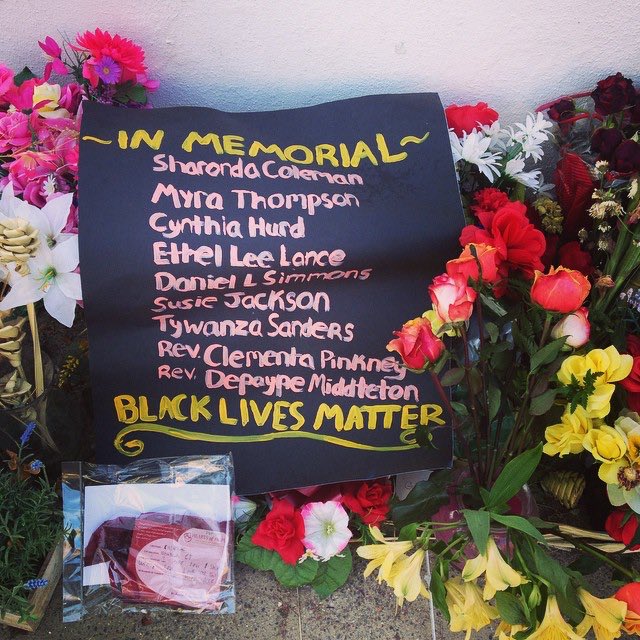 ~IN MEMORIAL~
Sharonda Coleman
Myra Thompson
Cynthia Hurd
Ethel Lee Lance
Daniel L Simmons
Susie Jackson
Tywanza Sanders
Rev. Clementa Pinkney
Rev. Depaype Middleton
BLACK LIVES MATTER